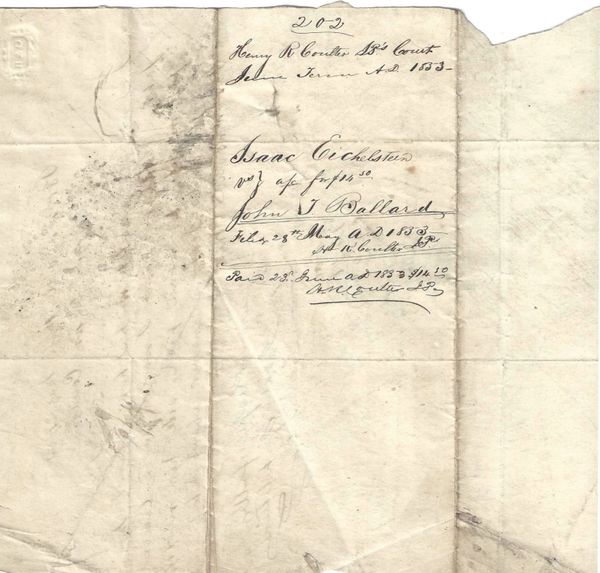 202
Henry R Coulter JP's Court
June Term A.D. 1853
Isaac Eichelstein
vs } a/c for $14.50
John T Ballard
Filed 28th May A.D 1853
H R. Coulter JP
Paid 28 June A D 1853 $14.50
H R Coulter J.P.